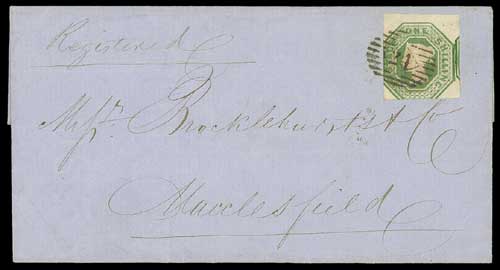 Registered
ONE SHILLING
Messrs. Brocklehursts & Co
Macclesfield